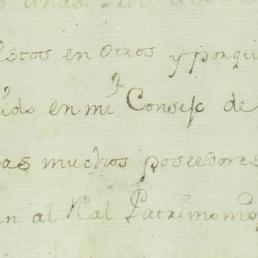 estos en otros y porqu
ido en mi Consejo de
as muchos poseedores
n al Rral Patrimonio